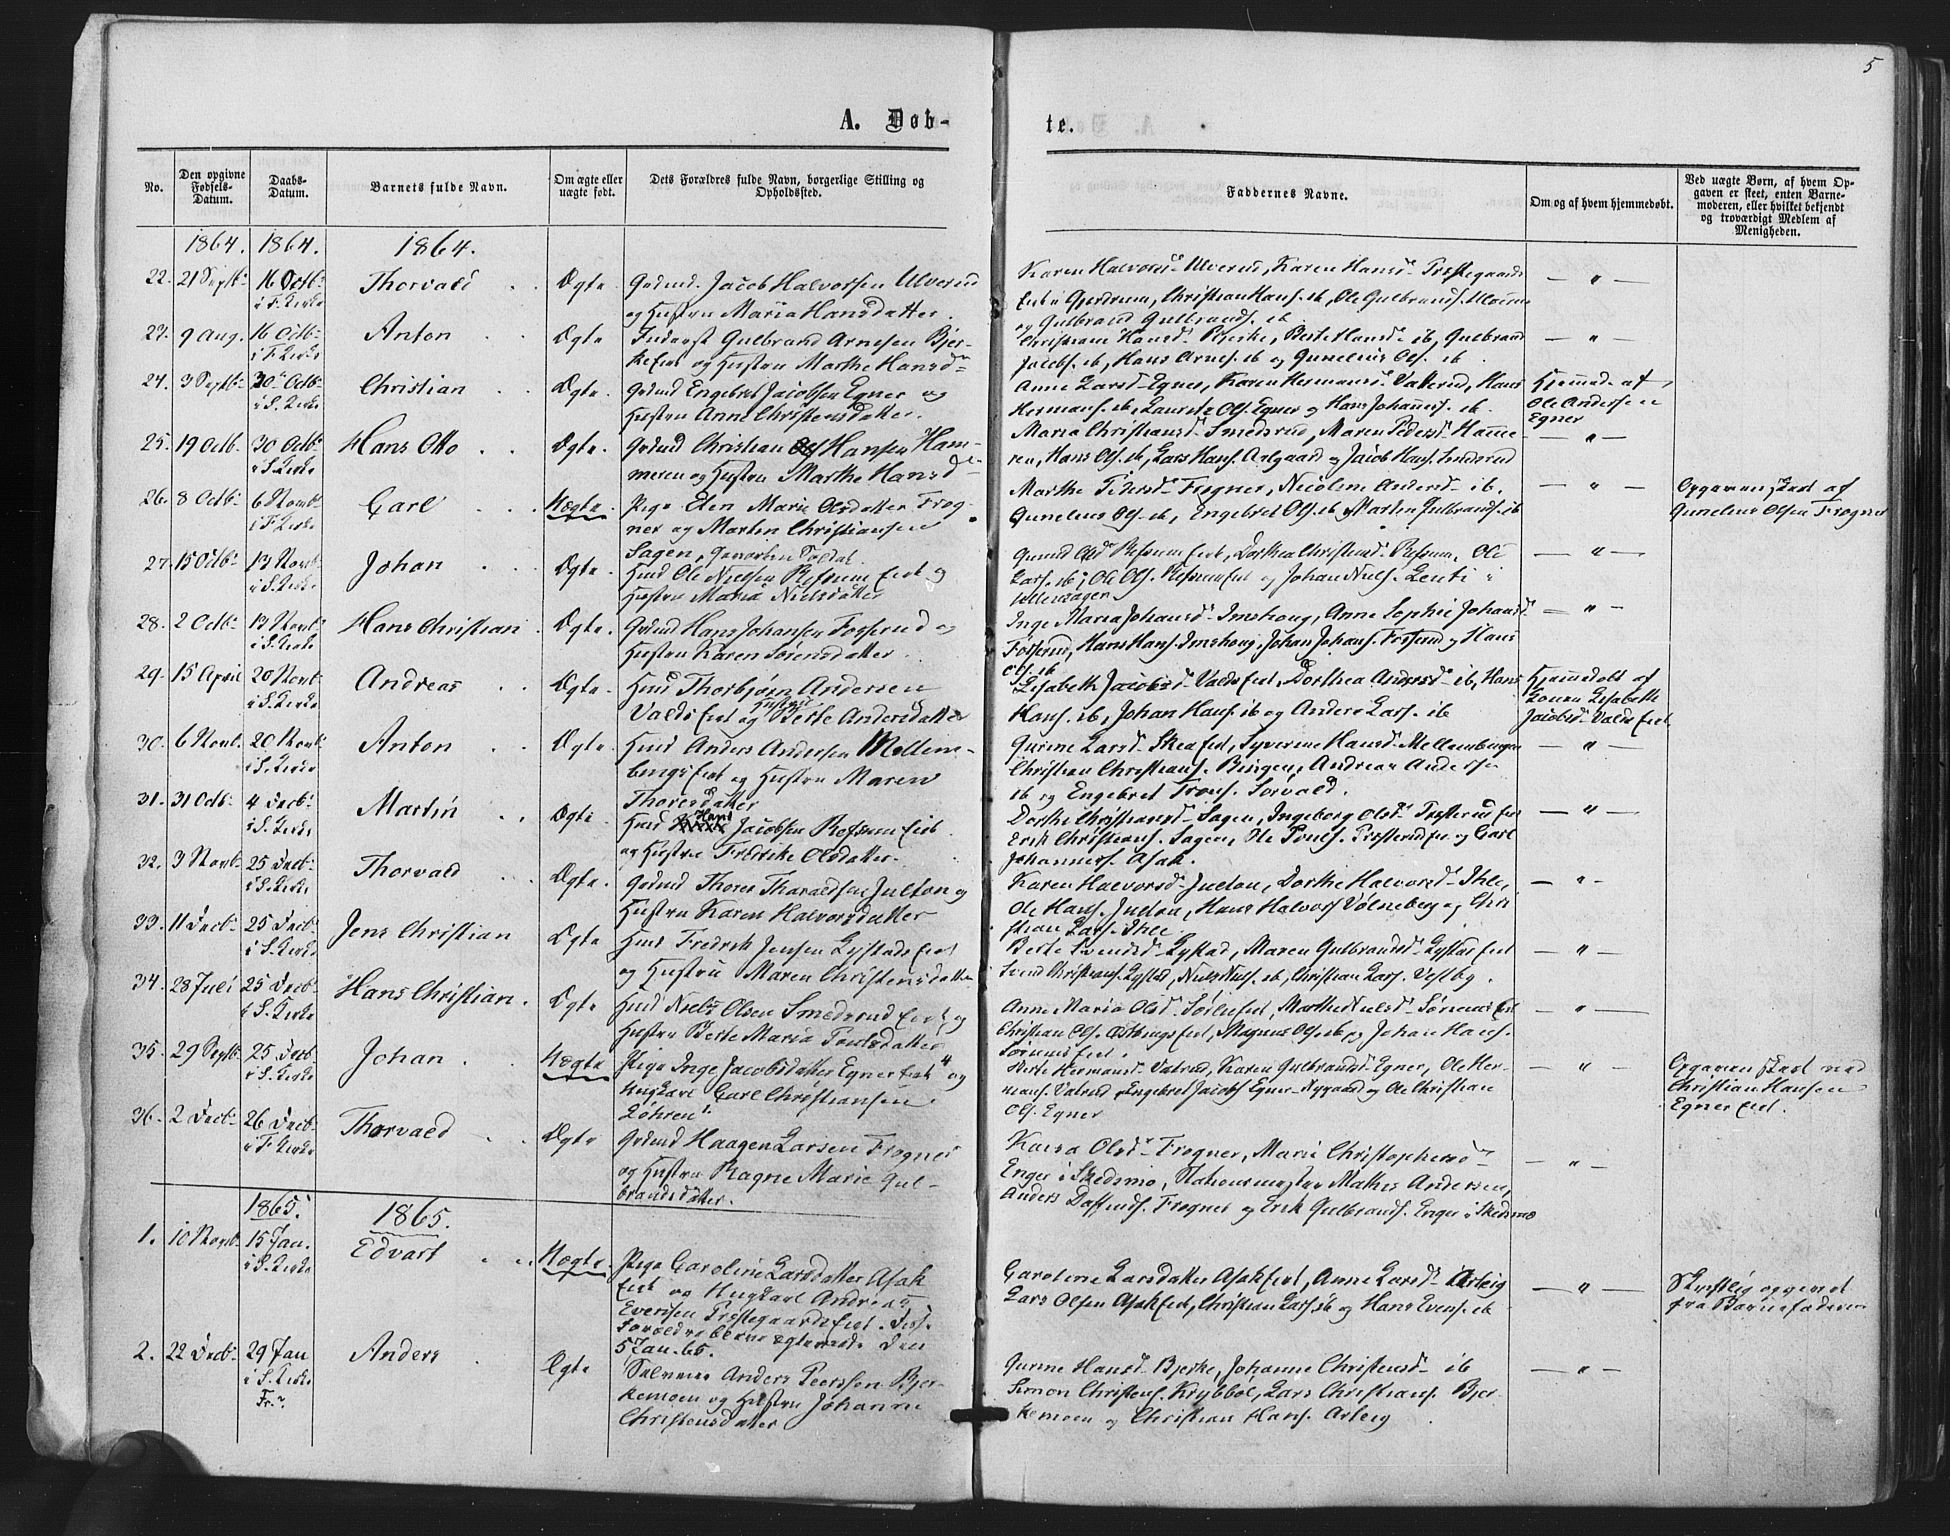 5
A. Døb-
te.
No.
Den opgivne Fødsels-Datum.
Daabs-Datum.
Barnets fulde Navn.
Om ægte eller uægte født.
Dets Forældres fulde Navn, borgerlige Stilling og Opholdssted.
Faddernes Navne.
Om og af hvem hjemmedøbt.
Ved uægte Børn, af hvem Opgaven er skeet, enten Barnemoderen, eller hvilket bekjendt og troværdigt Medlem af Menigheden.
1864. 1864. 1864.
22. 21 Septb: 16 Octb: i F. Kirke Thorvald Ægte Gdmd. Jacob Halvorsen Ulverud
og Hustru Maria Hansdatter.
Karen Halvorsd: Ulverud, Karen Hansd: Præstegaards
Eie i Gjerdrum, Christian Hans. ib, Ole Gulbrands.
og Gulbrand Gulbrands. ib
23. 9 Aug. 16 Octb: i F. Kirke Anton Ægte Inderst Gulbrand Arnesen Bjer-
ke Eiet og Hustru Marthe Hansd:
Christiane Hansd: Bjerke, Berte Hansd: ib, Gulbrand
Jacobs. ib, Hans Arnes. ib og Gunelius Ols. ib.
24. 3 Septb: 30 Octb: i S. Kirke Christian Ægte Gdmd Engebret Jacobsen Egner og
Hustru Anne Christensdatter.
Anne Larsd: Egner, Karen Hermansd: Valerud, Hans
Hermans. ib, Laurits Ols. Egner og Hans Johanns. ib.
Hjemmed: af
Ole Andersen
Egner
25. 19 Octb: 30 Octb: i S. Kirke Hans Otto Ægte Gdmd Christian Hansen Ham-
meren og Hustru Marthe Hansd:
Maria Christiansd: Smedsrud, Maren Pedersd: Hamme-
ren, Hans Ols. ib, Lars Hans. Aalgaard og Jacob Hans.
26. 8 Octb: 6 Novb: i F. Kirke Carl Uægte Pige Elen Marie Olsdatter Frog-
ner og Martin Christiansen
Sagen,
Marthe Frogner, Nicoline Andersd: ib,
Gunelius Ols. ib, Engebret Ols. ib, Martin Gulbrands. ib
Opgaven skeet af
Gunelius Olsen Frogner
27. 15 Octb: 13 Novb: i S. Kirke Johan Ægte Hmd Ole Nielsen Refsum Eiet og
Hustru Maria Nielsdatter
Gunild Olsd: Refsum Eiet, Dorthea Christensd: Refsum, Ole
Lars. ib, Ole Ols. Refsum Eiet og Johan Niels. i
Ullensager
28. 2 Octb: 13 Novb: i S. Kirke Hans Christian Ægte Gdmd Hans Johansen Fosserud og
Hustru Karen Sørensdatter
Inge Maria Johansd: Imshoug, Anne Sophie Johansd:
Fosserud, Hans Hans. Imshoug, Johan Johans. Fosserud og Hans
Ols. ib
29. 15 April 20 Novb: i S. Kirke Andreas Ægte Hmd Thorbjørn Andersen
Valds Eiet og Hustru Berte Andersdatter
Elisabeth Jacobsd: Valds Eiet, Dorthea Andersd: ib, Hans
Hans. ib, Johan Hans. ib og Anders Lars. ib
Hjemmedøbt af
Konen Elisabeth
Jacobsd: Valds Eiet
30. 6 Novb. 20 Novb: i S. Kirke Anton Ægte Hmd Anders Andersen Mellem-
bings Eiet og Hustru Maren
Thoresdatter
Gurine Larsd: Skea Eiet, Syverine Hansd: Mellembingen
Christian Christians. Bingen, Andreas Andersen
ib og Engebret Trons. Sørvald.
31. 31 Octb: 4 Decb: i S. Kirke Martin Ægte Hmd Hans Jacobsen Refsum Eiet
og Hustru Fredrike Olsdatter.
Dorthe Christiansd: Sagen, Ingeborg Olsd: Præsterud Eie
Erik Christians. Sagen, Ole Pouls. Præsterud Eie og Carl
Johannes. Asak.
32. 3 Novb: 25 Decb: i S. Kirke Thorvald Ægte Gdmd Thores Tharaldsen Julton og
Hustru Karen Halvorsdatter
Karen Halvorsd: Julton, Dorthe Halvorsd: Ihle,
Ole Hans. Julton, Hans Halvors. Vølneberg og Chri
stian Lars. Ihle
33. 11 Decb: 25 Decb: i S. Kirke Jens Christian Ægte Hmd Fredrik Jensen Lystads Eiet
og Hustru Maren Christensdatter
Berte Svendsd: Lystad, Maren Gulbrandsd: Lystad Eiet
Svend Christians. Lystad, Niels Niels. ib, Christian Lars. Vestby.
34. 28 Juli 25 Decb: i S. Kirke Hans Christian. Ægte Hmd Niels Olsen Smedsrud Eiet og
Hustru Berte Maria Poulsdatter
Anne Maria Olsd: Sørum Eiet, Marthe Nielsd: Sørums Eiet
Christian Ols. Østbings Eiet, Magnus Ols. ib og Johan Hans.
Sørums Eiet.
35. 29 Septb: 25 Decb: i S. Kirke Johan Uægte Pige Inge Jacobsdatter Egner Eiet og
Ungkarl Carl Christiansen
Løhren
Berte Hermansd: Valerud, Karen Gulbrandsd: Egner, Ole Her-
mans. Valerud, Engebret Jacobs. Egner-Nygaard og Ole Christian
Ols. Egner
Opgaven skeet ved
Christian Hansen
Egner Eiet.
36. 2 Decb: 26 Decb: i F. Kirke Thorvald Ægte Gdmd Haagen Larsen Frogner
og Hustru Ragne Marie Gul-
brandsdatter.
Kaisa Olsd: Frogner, Marie Christophersd:
Enger i Skedsmo, Stationsmester Mathis Andersen,
Anders Daffinds. Frogner og Erik Gulbrands. Enger i Skedsmo
1865. 1865.
1. 10 Novb: 15 Jan. i S. Kirke Edvart Uægte. Pige Caroline Larsdatter Asak
Eiet og Ungkarl Andreas
Evensen Præstegaards Eiet. Disse
Forældre bleve ægteviede den
5 Jan. 65.
Caroline Larsdatter Asak Eiet, Anne Larsd: Arteig
Lars Olsen Asak Eiet, Christian Lars. ib og Hans Evens. ib
Skriftlig opgivet
fra Barnefaderen
2. 22 Decb: 29 Jan i S. Kirke Fr. Anders Ægte Selveier Anders Peersen Bjer-
kemoen og Hustru Johanne
Christensdatter
Gurine Hansd: Bjerke, Johanne Christensd: ib
Simon Christens. Krybbol, Lars Christians. Bjer-
kemoen og Christian Hans. Arteig